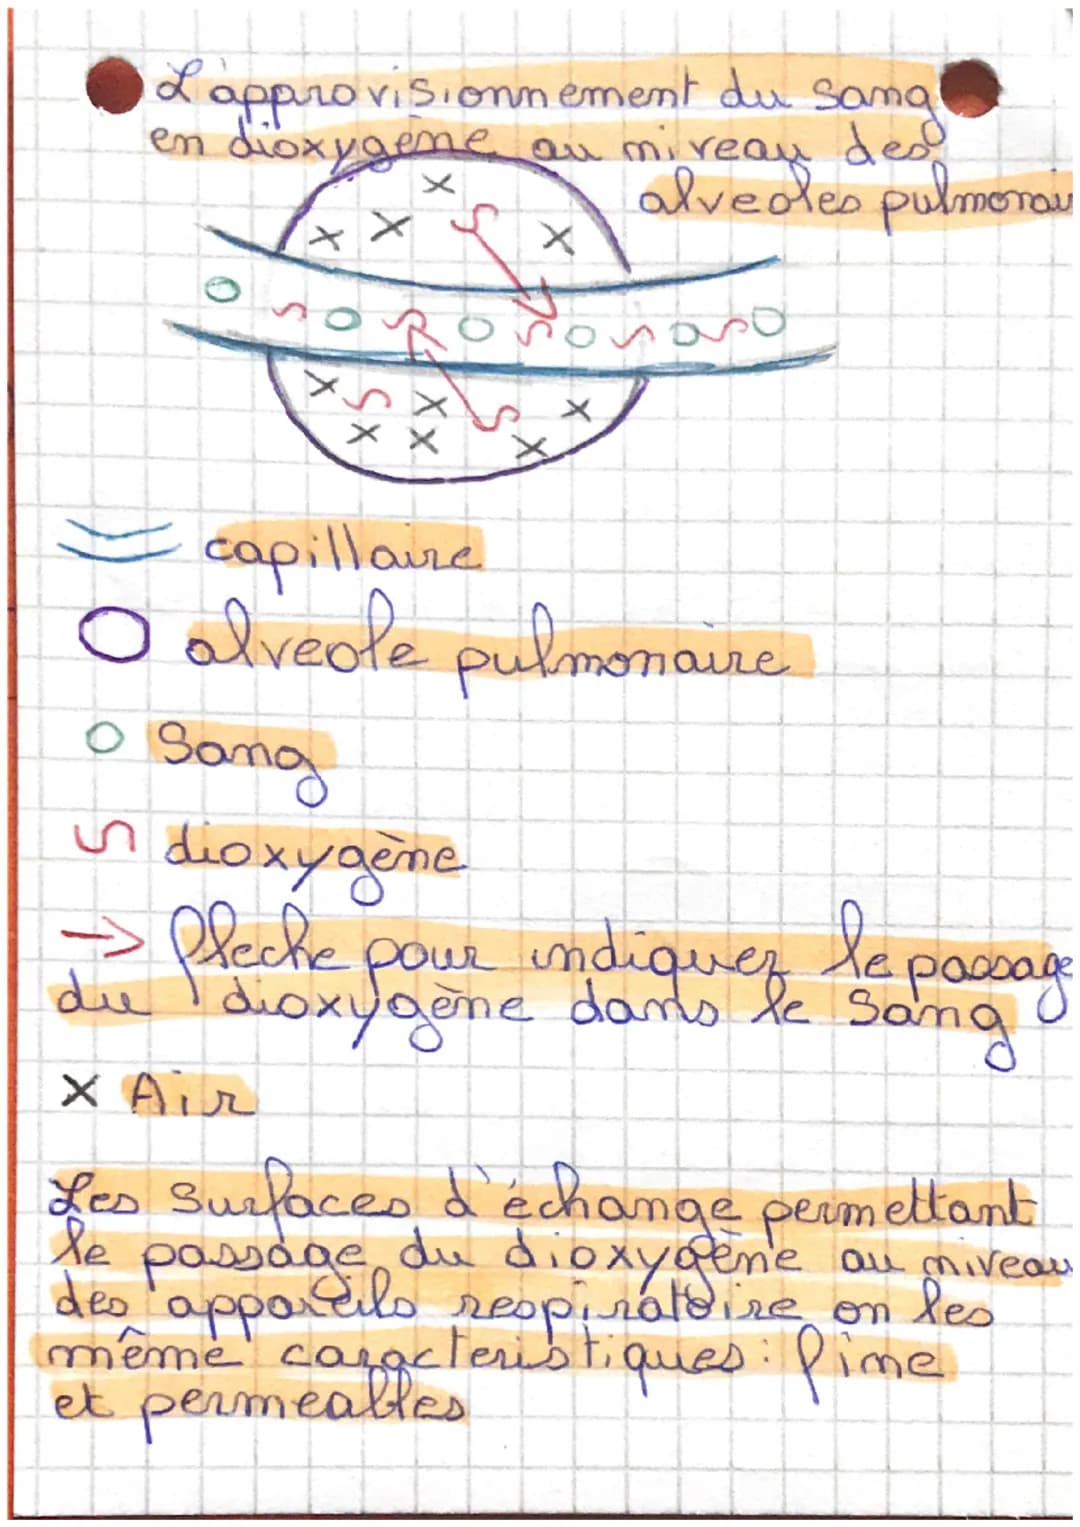 L'approvisionnement du sang
en dioxygène au niveau des
alveoles pulmonair
capillaire
alveole pulmonaire
Sang
dioxygène
fleche pour indiquer le passage
du dioxygène dans le sang
Air
Les surfaces d'échange permettant
le passage du dioxygène au niveau
des appareils respiratoire on les
même caracteristiques : fine
et permeables